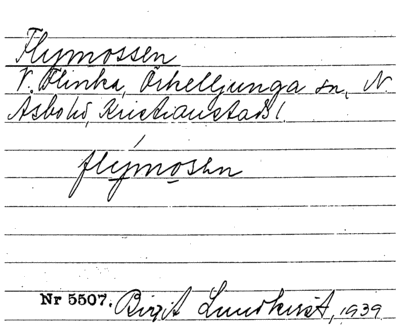 Flymossen
V. Flinka, Örkelljunga sn, N
Åsbo hd, Kristianstads l.
flýmosen
Nr 5507. Birgit Lundkvist, 1939